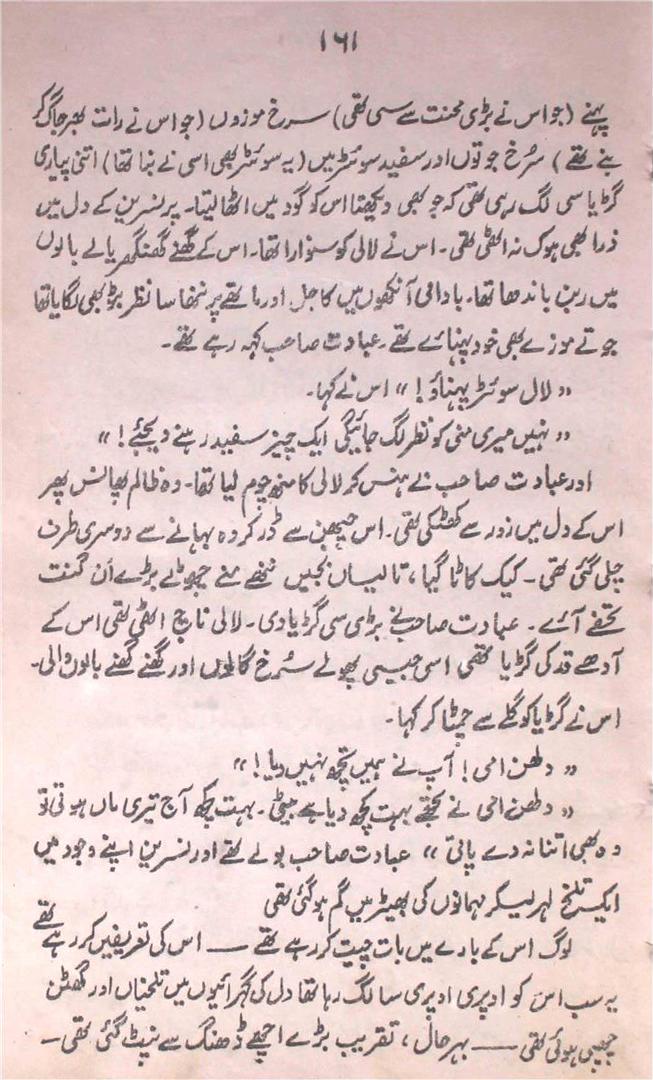 ۱۶۱
پہنے (جو اس نے بڑی محنت سے سی تھی) سرخ موزوں (جو اس نے رات بھر جاگ کر
بنے تھے) سُرخ جوتوں اور سفید سوئٹر میں (یہ سوئٹر بھی اسی نے بنا تھا) اتنی پیاری
گڑیا سی لگ رہی تھی کہ جو بھی دیکھتا اس کو گود میں اٹھا لیتا۔ پر نسرین کے دل میں
ذرا بھی ہوک نہ اٹھی تھی۔ اس نے لالی کو سنوارا تھا۔ اس کے گھنے گھنگھریالے بالوں
میں ربن باندھا تھا۔ بادامی آنکھوں میں کاجل اور ماتھے پر ننھا سا نظر بٹو بھی لگایا تھا
جوتے موزے بھی خود پہنائے تھے۔ عبادت صاحب کہہ رہے تھے۔
”لال سوئٹر پہناؤ!“ اس نے کہا۔
”نہیں میری منی کو نظر لگ جائیگی ایک چیز سفید رہنے دیجئے!“
اور عبادت صاحب نے ہنس کر لالی کا منہ چوم لیا تھا۔ وہ ظالم پھانس پھر
اس کے دل میں زور سے کھٹکی تھی۔ اس چبھن سے ڈر کر وہ بہانے سے دوسری طرف
چلی گئی تھی۔ کیک کاٹا گیا، تالیاں بجیں ننھے منے چھوٹے بڑے اَن گنت
تحفے آئے۔ عبادت صاحب نے بڑی سی گڑیا دی۔ لالی ناچ اٹھی تھی اس کے
آدھے قد کی گڑیا تھی اسی جیسی پھولے سُرخ گالوں اور گھنے گھنے بالوں والی۔
اس نے گڑیا کو گلے سے چمٹا کر کہا۔
”دلھن امی! آپ نے ہمیں کچھ نہیں دیا!“
”دلھن امی نے تجھے بہت کچھ دیا ہے بیٹی۔ بہت کچھ آج تیری ماں ہوتی تو
وہ بھی اتنا نہ دے پاتی“ عبادت صاحب بولے تھے اور نسرین اپنے وجود میں
ایک تلخ لہر لیکر مہمانوں کی بھیڑ میں گم ہو گئی تھی
لوگ اس کے بارے میں بات چیت کر رہے تھے — اس کی تعریفیں کر رہے تھے
یہ سب اس کو اوپری اوپری سا لگ رہا تھا دل کی گہرائیوں میں تلخیاں اور گھٹن
چھپی ہوئی تھی — بہر حال، تقریب بڑے اچھے ڈھنگ سے نپٹ گئی تھی۔